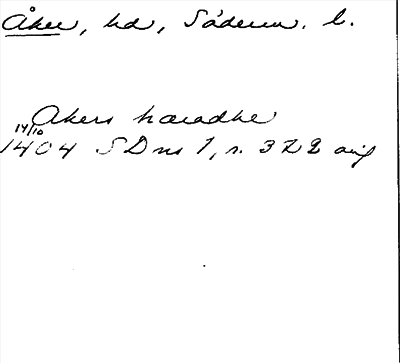 Åker, hd, Söderm. l.
Akers hæradhe
14/10
1404 SDns 1, s. 322 orig